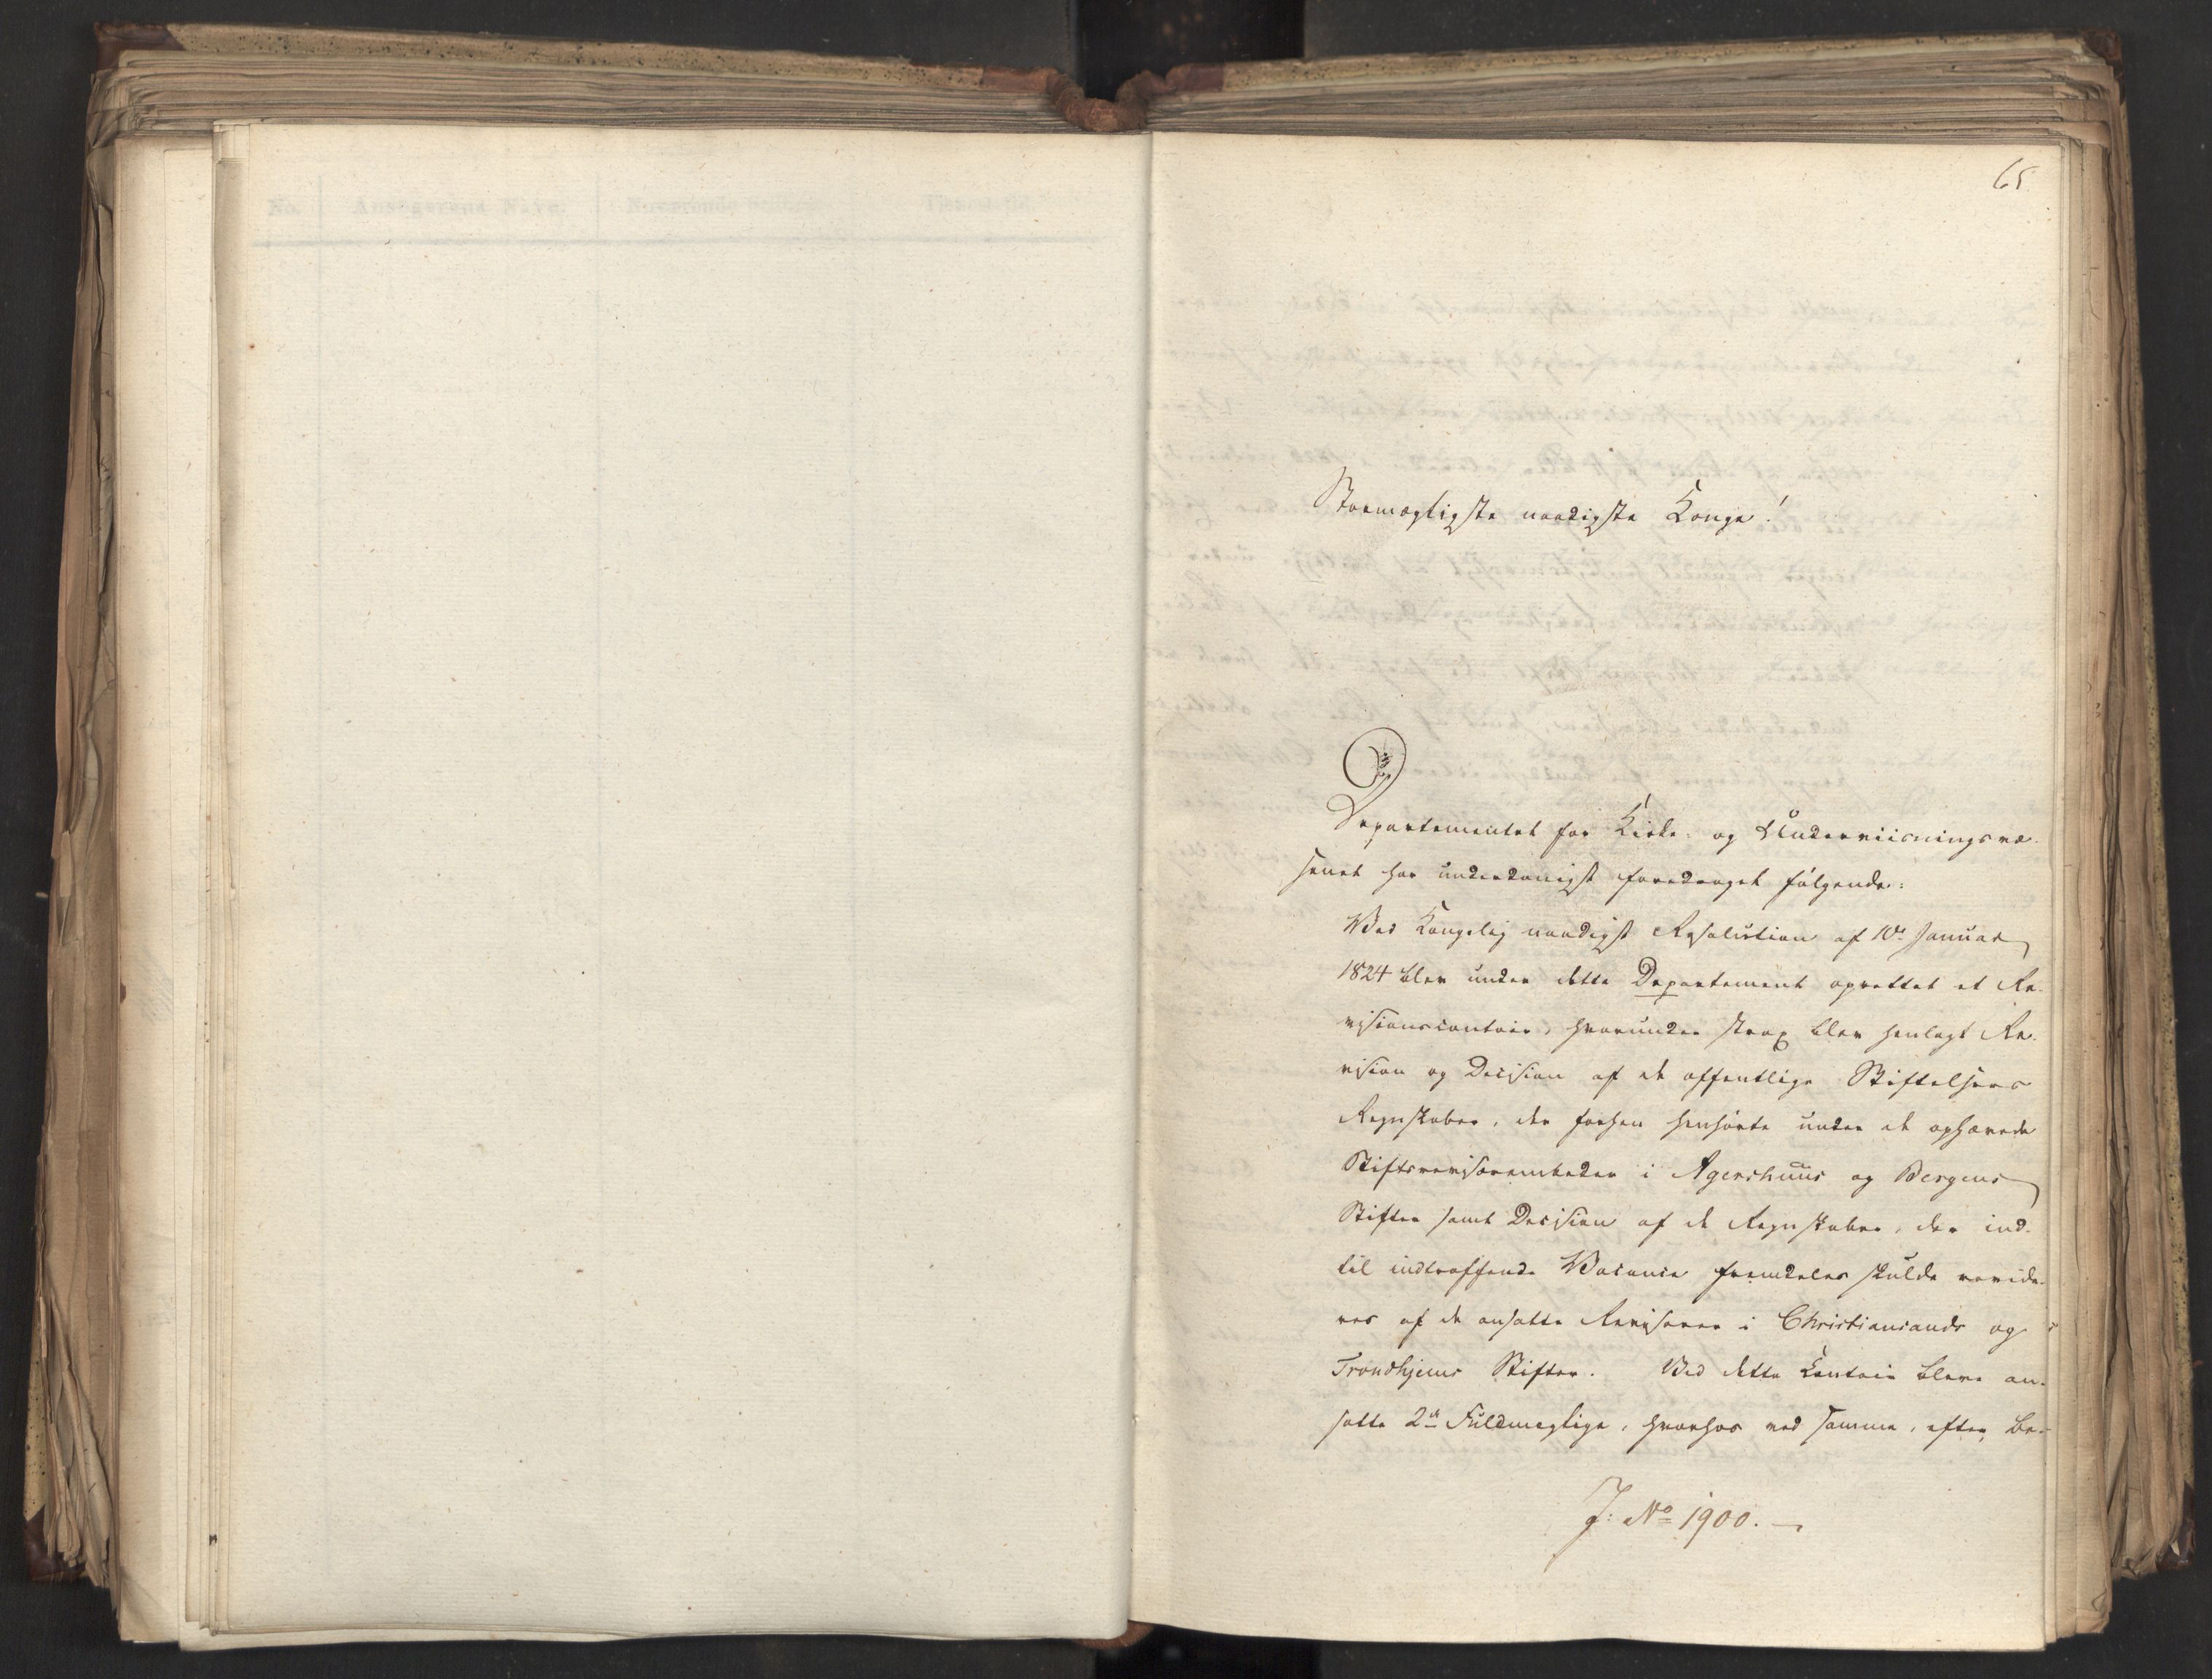 65.
No. Ansøgerens Navn. Nuværende Stilling. Tjenestetid.
Stormægtigste naadigste Konge!
Departementet for Kirke- og Underviisningsvæ-
senet har underdanigst foredraget følgende:
Ved Kongelig naadigst Resolution af 10de Januar
1824 blev under dette Departement oprettet et Re-
visionscontoir, hvorunder strax blev henlagt Re-
vision og Decision af de offentlige Stiftelsers
Regnskaber, der forhen henhørte under de ophævede
Stiftsrevisorembeder i Agershuus og Bergens
Stifter samt Decision af de Regnskaber, der ind-
til indtreffende Vacance fremdeles skulde revide-
res af de ansatte Revisorer i Christiansands og
Trondhjems Stifter. Ved dette Contoir bleve an-
satte 2de Fuldmægtige, hvorhos ved samme, efter Be-
J: No 1900.